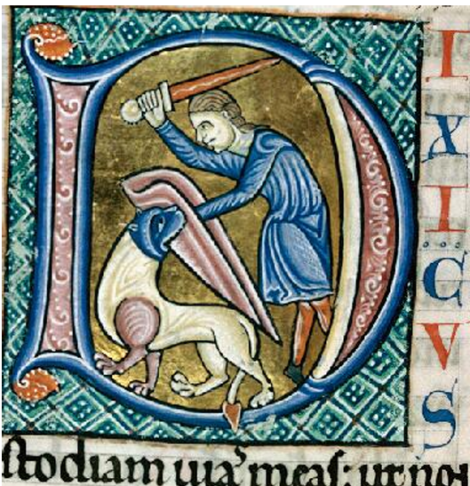 D
I
X
I
C
V
S
ſtodiam uiaˢ meaſ: ut no